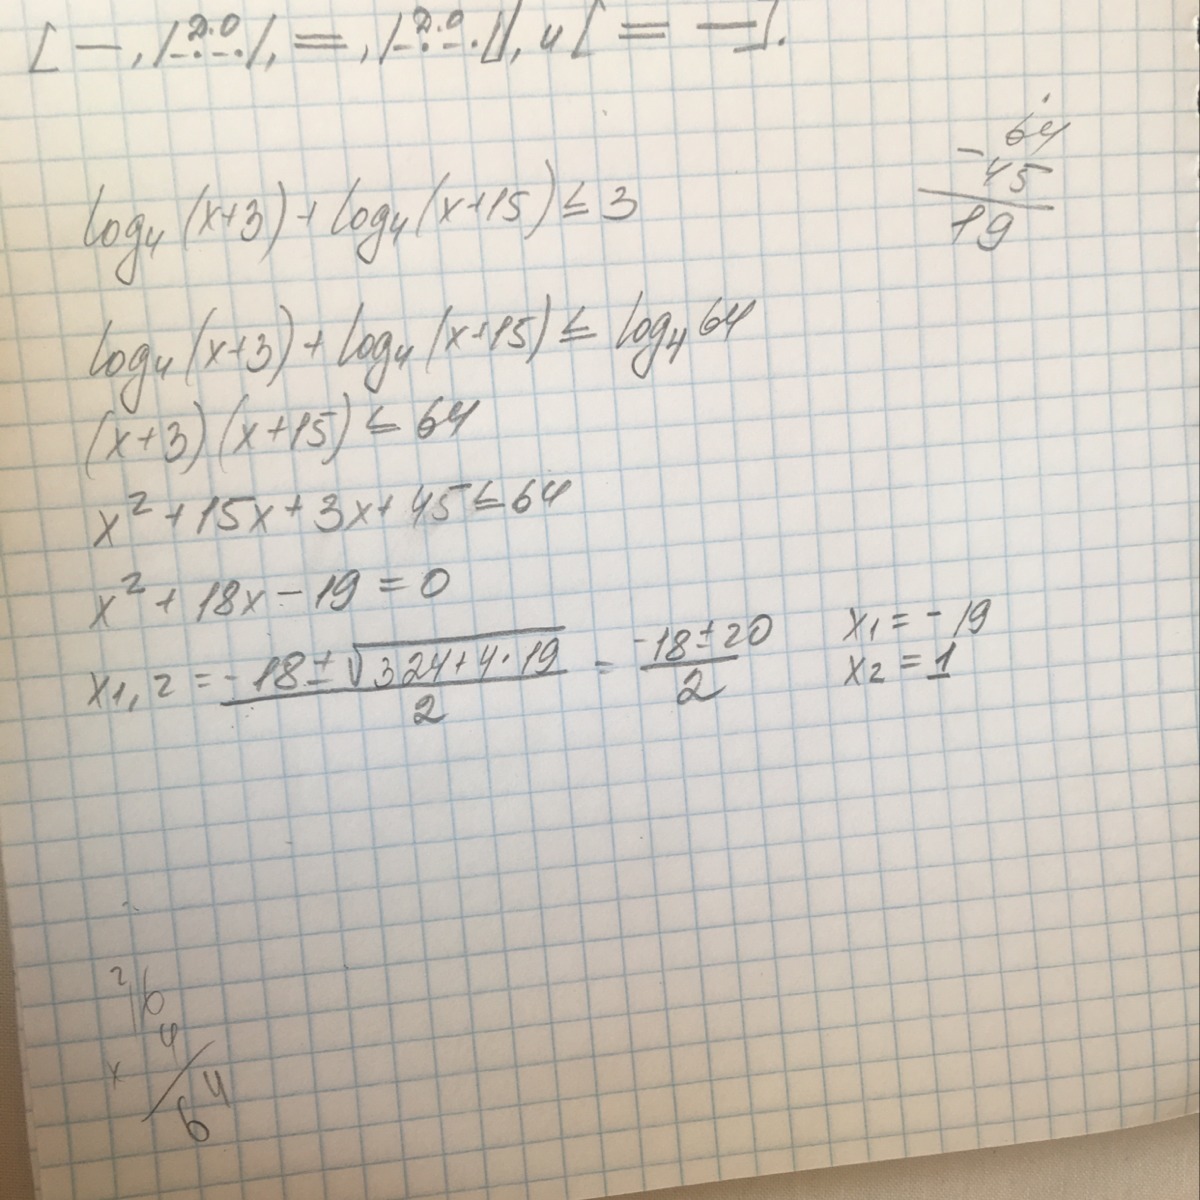 [—, /-·-·/, =, /-·-·/], и [= —].
д.о д.о
log₄(x+3)+log₄(x+15)≤3
64
-45
19
log₄(x+3)+log₄(x+15)≤log₄64
(x+3)(x+15)≤64
x²+15x+3x+45≤64
x²+18x-19=0
x1,2=(-18±√(324+4·19))/2=(-18±20)/2 x₁=-19
x₂=1
2
16
4
x
64